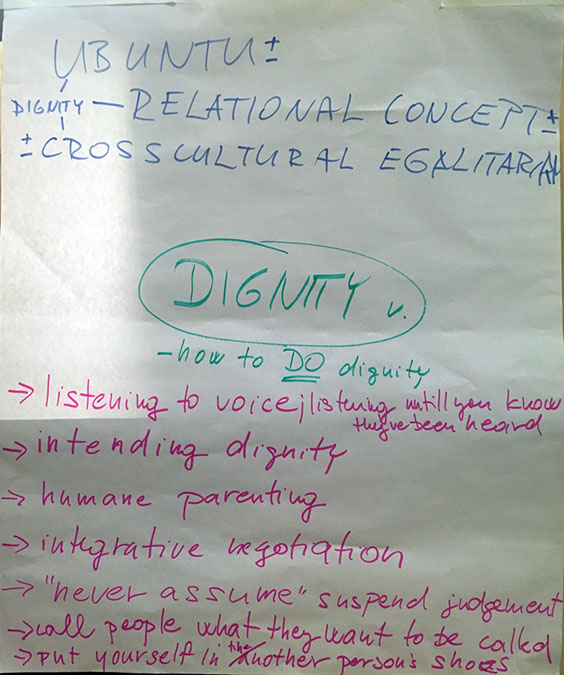 UBUNTU ±
DIGNITY — RELATIONAL CONCEPT ±
± CROSSCULTURAL EGALITARIAN
DIGNITY v.
- how to DO dignity
→ listening to voice; listening untill you know
they've been heard
→ intending dignity
→ humane parenting
→ integrative negotiation
→ "never assume" suspend judgement
→ call people what they want to be called
→ put yourself in the other person's shoes